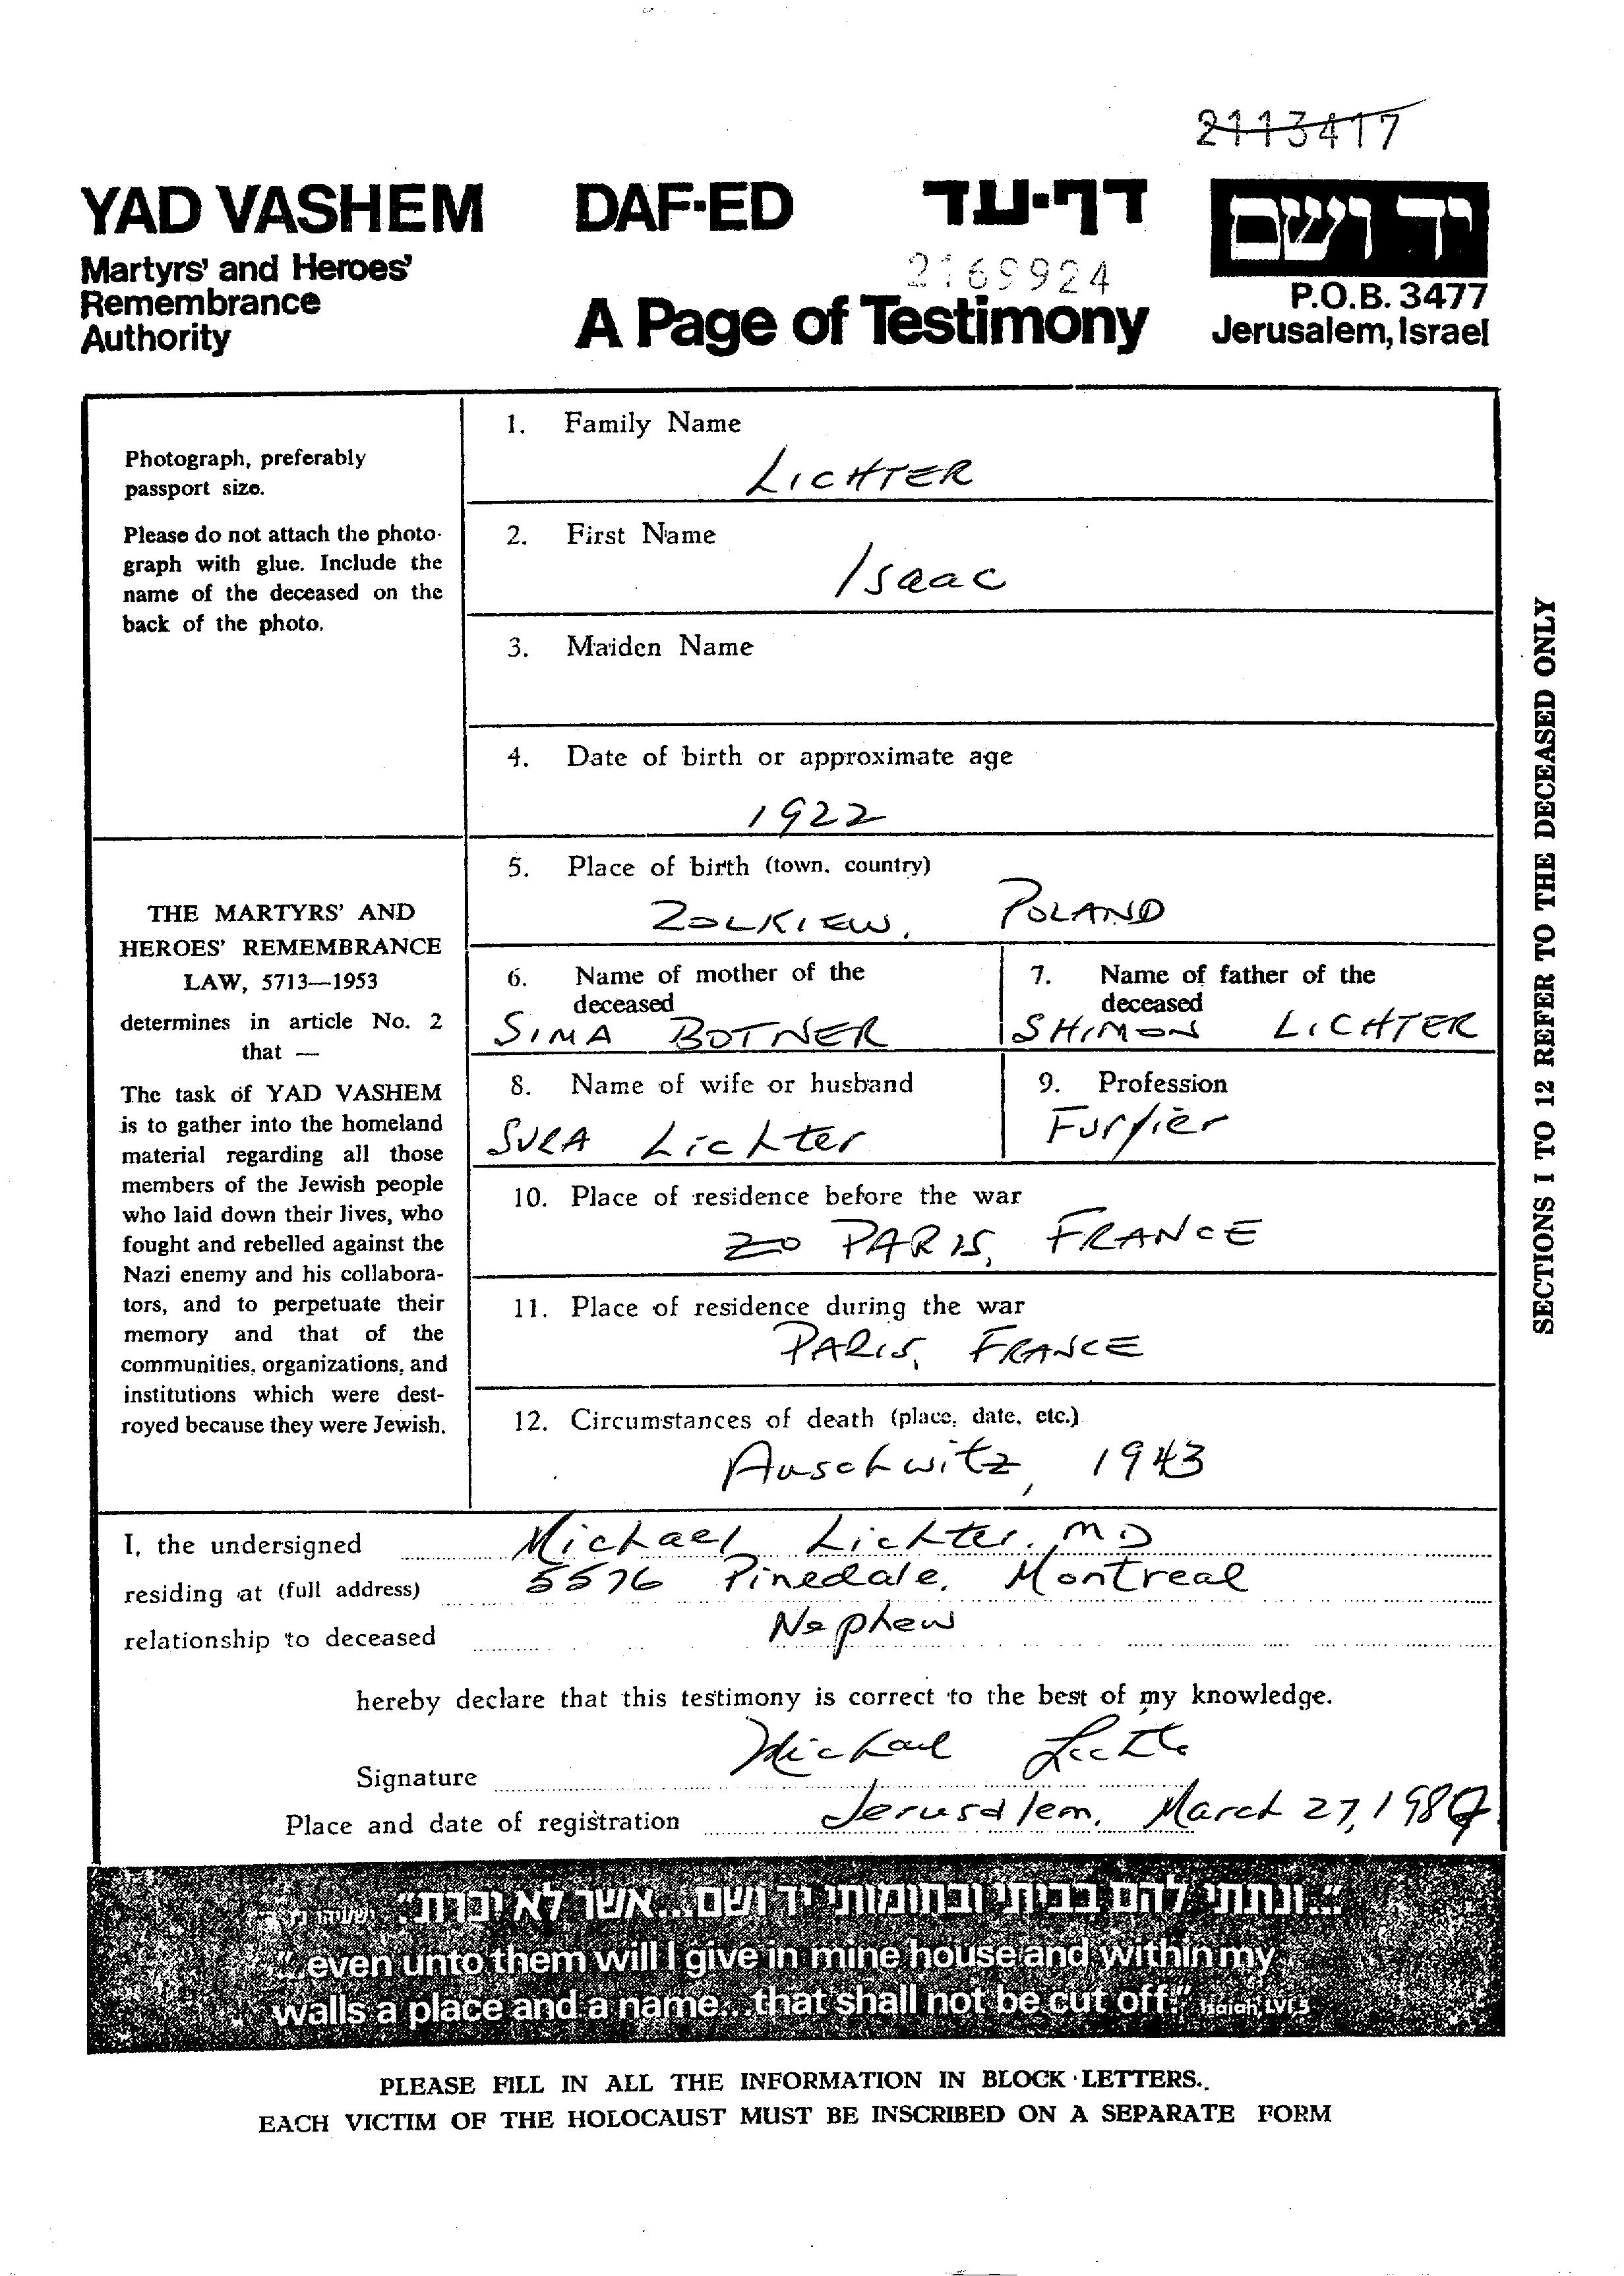 2113417
YAD VASHEM DAF-ED דף-עד יד ושם
Martyrs' and Heroes'
Remembrance
Authority
2169924
A Page of Testimony
P.O.B. 3477
Jerusalem, Israel
Photograph, preferably
passport size.
Please do not attach the photo-
graph with glue. Include the
name of the deceased on the
back of the photo.
THE MARTYRS' AND
HEROES' REMEMBRANCE
LAW, 5713—1953
determines in article No. 2
that —
The task of YAD VASHEM
is to gather into the homeland
material regarding all those
members of the Jewish people
who laid down their lives, who
fought and rebelled against the
Nazi enemy and his collabora-
tors, and to perpetuate their
memory and that of the
communities, organizations, and
institutions which were dest-
royed because they were Jewish.
1. Family Name
LICHTER
2. First Name
Isaac
3. Maiden Name
4. Date of birth or approximate age
1922
5. Place of birth (town, country)
ZOLKIEW, POLAND
6. Name of mother of the
deceased
SIMA BOTNER
7. Name of father of the
deceased
SHIMON LICHTER
8. Name of wife or husband
SURA Lichter
9. Profession
Furrier
10. Place of residence before the war
ZO PARIS, FRANCE
11. Place of residence during the war
PARIS, FRANCE
12. Circumstances of death (place, date, etc.)
Auschwitz, 1943
SECTIONS 1 TO 12 REFER TO THE DECEASED ONLY
I, the undersigned Michael Lichter, MD
residing at (full address) 5576 Pinedale, Montreal
relationship to deceased Nephew
hereby declare that this testimony is correct to the best of my knowledge.
Signature Michael Lichter
Place and date of registration Jerusalem, March 27, 1989
"...ונתתי להם בביתי ובחומותי יד ושם...אשר לא יכרת." ישעיהו
"...even unto them will I give in mine house and within my
walls a place and a name...that shall not be cut off." Isaiah, LVI, 5
PLEASE FILL IN ALL THE INFORMATION IN BLOCK LETTERS.
EACH VICTIM OF THE HOLOCAUST MUST BE INSCRIBED ON A SEPARATE FORM